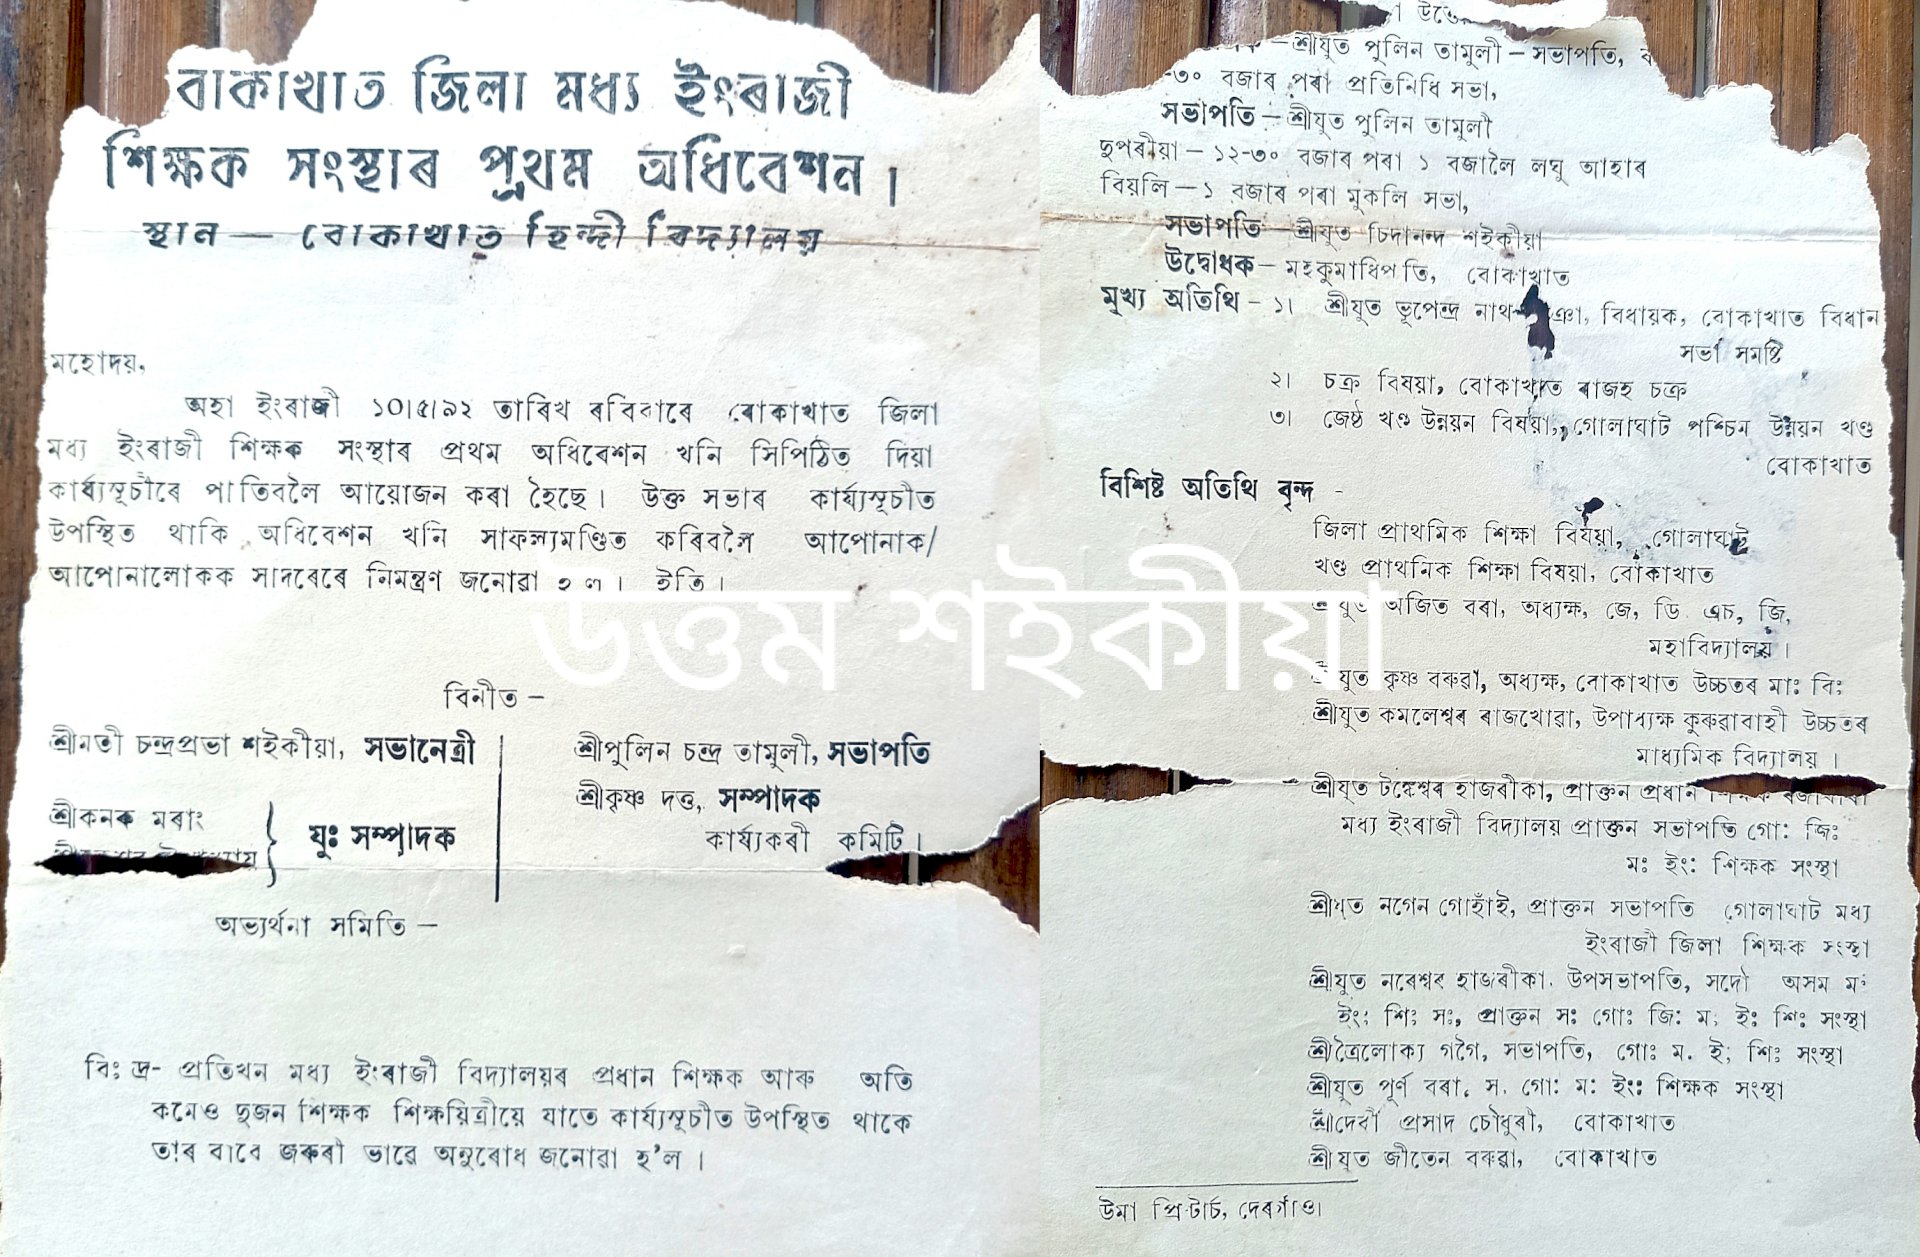 বোকাখাত জিলা মধ্য ইংৰাজী
শিক্ষক সংস্থাৰ প্ৰথম অধিবেশন।
স্থান — বোকাখাত হিন্দী বিদ্যালয়
মহোদয়,
অহা ইংৰাজী ১০।৫।৯২ তাৰিখ ৰবিবাৰে বোকাখাত জিলা
মধ্য ইংৰাজী শিক্ষক সংস্থাৰ প্ৰথম অধিবেশন খনি সিপিঠিত দিয়া
কাৰ্য্যসূচীৰে পাতিবলৈ আয়োজন কৰা হৈছে। উক্ত সভাৰ কাৰ্য্যসূচীত
উপস্থিত থাকি অধিবেশন খনি সাফল্যমণ্ডিত কৰিবলৈ আপোনাক/
আপোনালোকক সাদৰেৰে নিমন্ত্ৰণ জনোৱা হ'ল। ইতি।
বিনীত –
শ্ৰীমতী চন্দ্ৰপ্ৰভা শইকীয়া, সভানেত্ৰী
শ্ৰীকনক মৰাং
যুঃ সম্পাদক
অভ্যৰ্থনা সমিতি –
শ্ৰীপুলিন চন্দ্ৰ তামুলী, সভাপতি
শ্ৰীকৃষ্ণ দত্ত, সম্পাদক
কাৰ্য্যকৰী কমিটি।
বিঃ দ্ৰ- প্ৰতিখন মধ্য ইংৰাজী বিদ্যালয়ৰ প্ৰধান শিক্ষক আৰু অতি
কমেও দুজন শিক্ষক শিক্ষয়িত্ৰীয়ে যাতে কাৰ্য্যসূচীত উপস্থিত থাকে
তাৰ বাবে জৰুৰী ভাৱে অনুৰোধ জনোৱা হ'ল।
– শ্ৰীযুত পুলিন তামুলী – সভাপতি,
-৩০ বজাৰ পৰা প্ৰতিনিধি সভা,
সভাপতি – শ্ৰীযুত পুলিন তামুলী
দুপৰীয়া – ১২-৩০ বজাৰ পৰা ১ বজালৈ লঘু আহাৰ
বিয়লি – ১ বজাৰ পৰা মুকলি সভা,
সভাপতি – শ্ৰীযুত চিদানন্দ শইকীয়া
উদ্বোধক – মহকুমাধিপতি, বোকাখাত
মুখ্য অতিথি – ১। শ্ৰীযুত ভূপেন্দ্ৰ নাথ বিধায়ক, বোকাখাত বিধান
সভা সমষ্টি
২। চক্ৰ বিষয়া, বোকাখাত ৰাজহ চক্ৰ
৩। জেষ্ঠ খণ্ড উন্নয়ন বিষয়া, গোলাঘাট পশ্চিম উন্নয়ন খণ্ড
বোকাখাত
বিশিষ্ট অতিথি বৃন্দ -
জিলা প্ৰাথমিক শিক্ষা বিষয়া, গোলাঘাট
খণ্ড প্ৰাথমিক শিক্ষা বিষয়া, বোকাখাত
শ্ৰীযুত অজিত বৰা, অধ্যক্ষ, জে, ডি এচ, জি,
মহাবিদ্যালয়।
শ্ৰীযুত কৃষ্ণ বৰুৱা, অধ্যক্ষ, বোকাখাত উচ্চতৰ মাঃ বিঃ
শ্ৰীযুত কমলেশ্বৰ ৰাজখোৱা, উপাধ্যক্ষ কুৰুৱাবাহী উচ্চতৰ
মাধ্যমিক বিদ্যালয়।
শ্ৰীযুত টঙ্কেশ্বৰ হাজৰীকা, প্ৰাক্তন প্ৰধান শিক্ষক
মধ্য ইংৰাজী বিদ্যালয় প্ৰাক্তন সভাপতি গোঃ জিঃ
মঃ ইংঃ শিক্ষক সংস্থা
শ্ৰীযুত নগেন গোহাঁই, প্ৰাক্তন সভাপতি গোলাঘাট মধ্য
ইংৰাজী জিলা শিক্ষক সংস্থা
শ্ৰীযুত নৰেশ্বৰ হাজৰীকা, উপসভাপতি, সদৌ অসম মঃ
ইংঃ শিঃ সঃ, প্ৰাক্তন সঃ গোঃ জিঃ মঃ ইঃ শিঃ সংস্থা
শ্ৰীত্ৰৈলোক্য গগৈ, সভাপতি, গোঃ ম. ইঃ শিঃ সংস্থা
শ্ৰীযুত পূৰ্ণ বৰা, স. গোঃ মঃ ইংঃ শিক্ষক সংস্থা
শ্ৰীদেৱী প্ৰসাদ চৌধুৰী, বোকাখাত
শ্ৰীযুত জীতেন বৰুৱা, বোকাখাত
উমা প্ৰিণ্টাৰ্চ, দেৰগাঁও।
উত্তম শইকীয়া